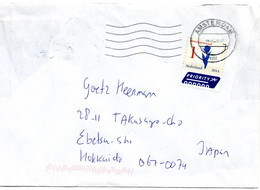 AMSTERDAM
1
Nederland
PRIORITY
Goetz Heermann
28-11 TAKasago-cho
Ebetsu-shi
Hokkaido 067-0074
Japan